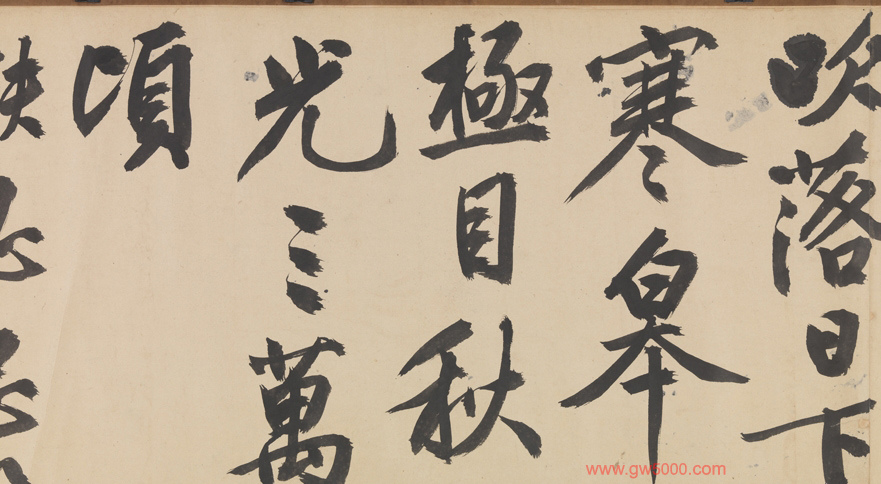 吹落日下
寒皋
極目秋
光三萬
頃
www.gw5000.com